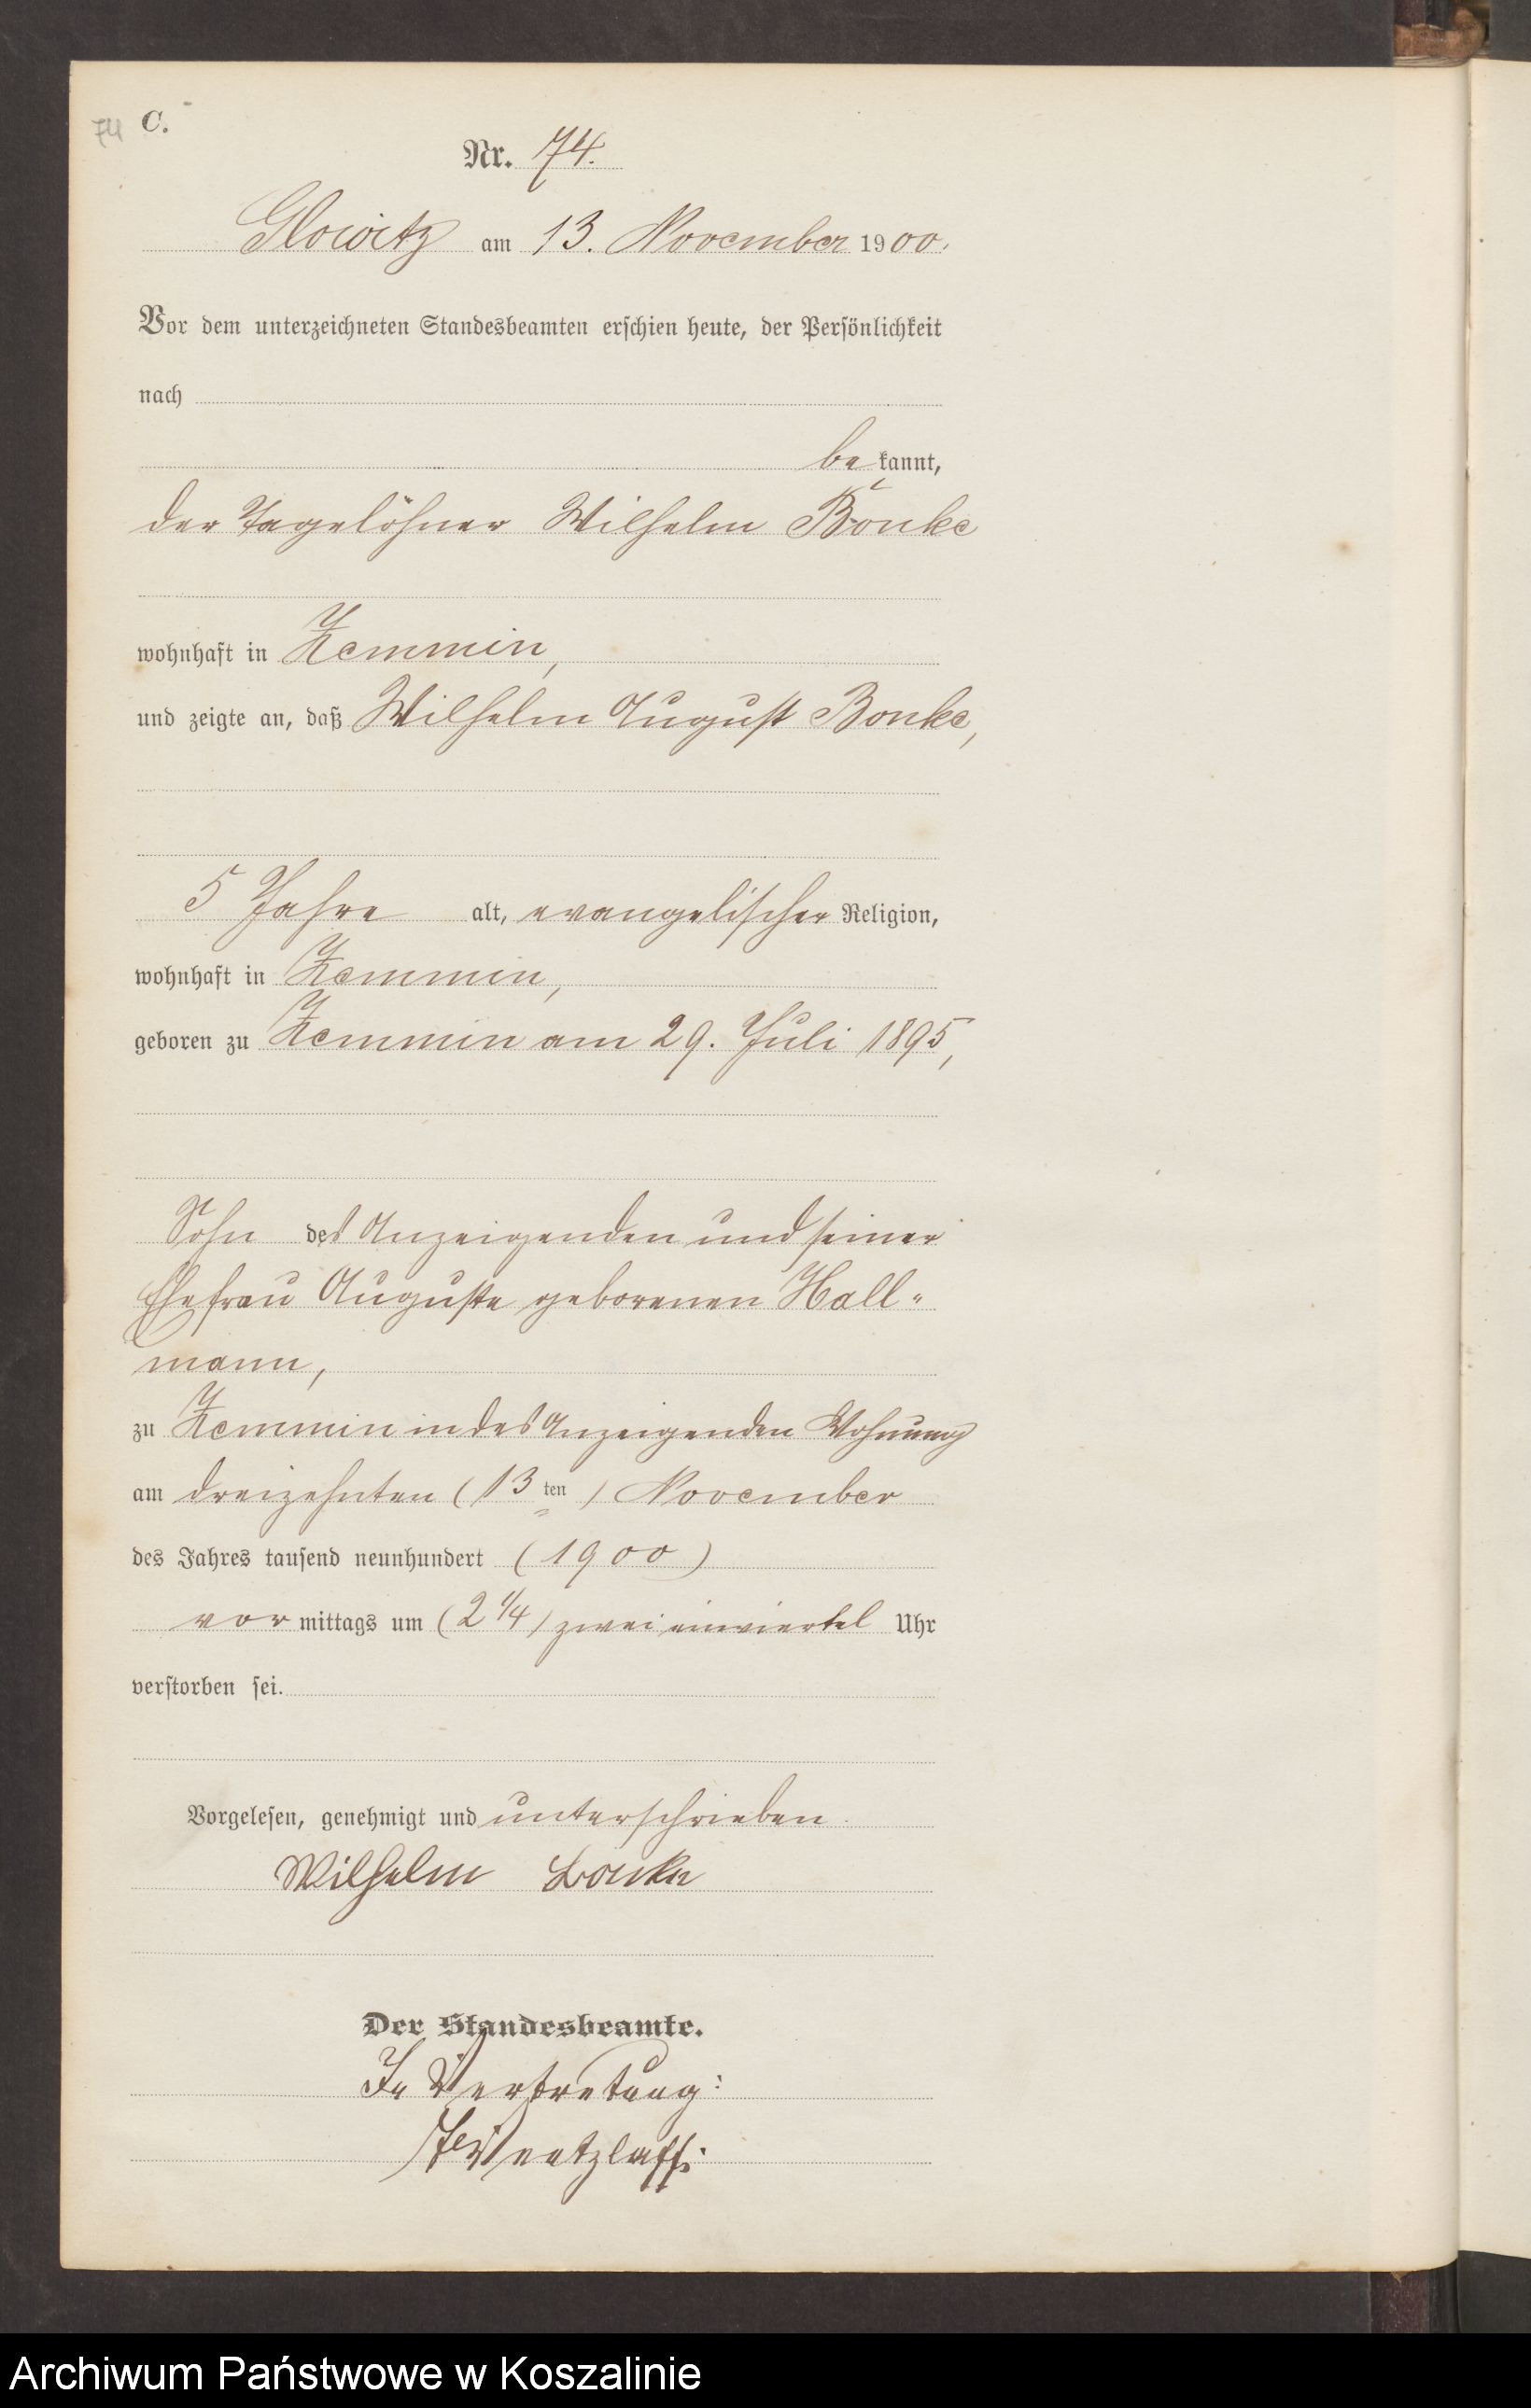 74 C.
Nr. 74.
Glowitz am 13. November 1900.
Vor dem unterzeichneten Standesbeamten erschien heute, der Persönlichkeit
nach
be kannt,
der Tagelöhner Wilhelm Bonke
wohnhaft in Zemmin,
und zeigte an, daß Wilhelm August Bonke,
5 Jahre alt, evangelischer Religion,
wohnhaft in Zemmin,
geboren zu Zemmin am 29. Juli 1895,
Sohn des Anzeigenden und seiner
Ehefrau Auguste geborenen Hall-
mann,
zu Zemmin in des Anzeigenden Wohnung
am dreizehnten (13 ten) November
des Jahres tausend neunhundert (1900)
vor mittags um (2 1/4) zwei einviertel Uhr
verstorben sei.
Vorgelesen, genehmigt und unterschrieben.
Wilhelm Bonke
Der Standesbeamte.
In Vertretung:
Wentzlaff.
Archiwum Państwowe w Koszalinie